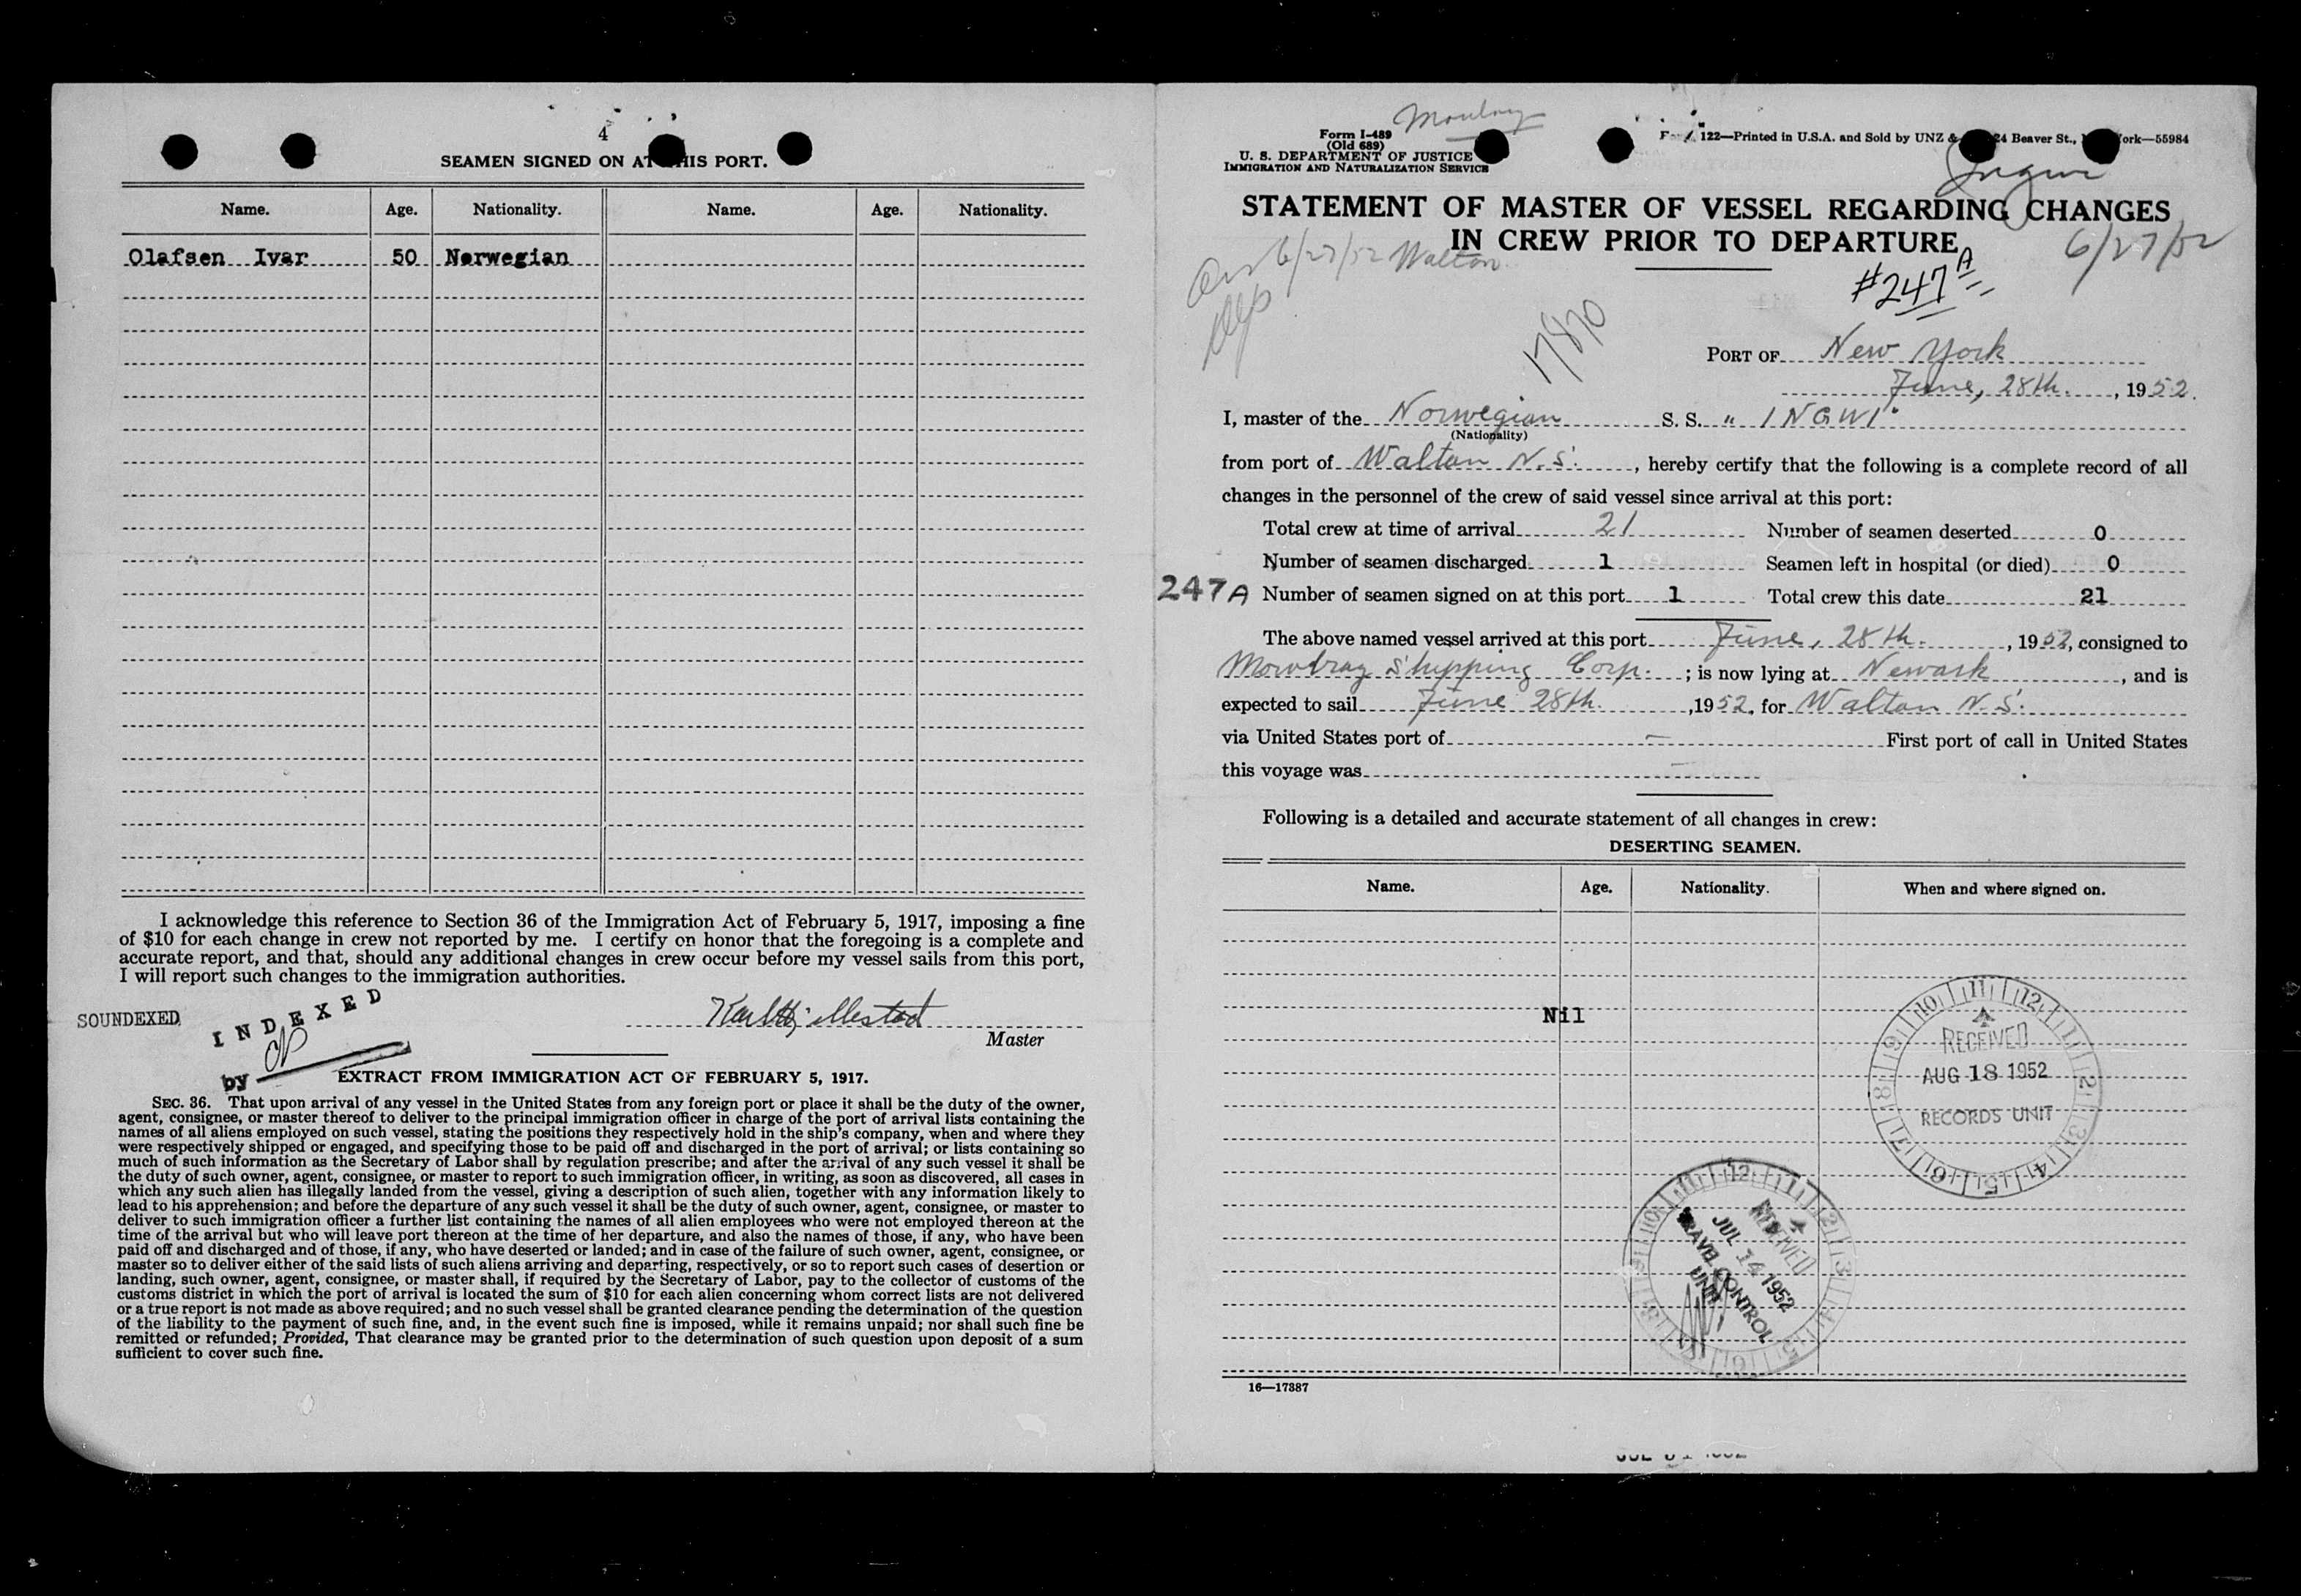 4
SEAMEN SIGNED ON AT THIS PORT.
Name. Age. Nationality. Name. Age. Nationality.
Olafsen Ivar 50 Norwegian
I acknowledge this reference to Section 36 of the Immigration Act of February 5, 1917, imposing a fine
of $10 for each change in crew not reported by me. I certify on honor that the foregoing is a complete and
accurate report, and that, should any additional changes in crew occur before my vessel sails from this port,
I will report such changes to the immigration authorities.
SOUNDEXED
INDEXED
by
Master
EXTRACT FROM IMMIGRATION ACT OF FEBRUARY 5, 1917.
SEC. 36. That upon arrival of any vessel in the United States from any foreign port or place it shall be the duty of the owner,
agent, consignee, or master thereof to deliver to the principal immigration officer in charge of the port of arrival lists containing the
names of all aliens employed on such vessel, stating the positions they respectively hold in the ship's company, when and where they
were respectively shipped or engaged, and specifying those to be paid off and discharged in the port of arrival; or lists containing so
much of such information as the Secretary of Labor shall by regulation prescribe; and after the arrival of any such vessel it shall be
the duty of such owner, agent, consignee, or master to report to such immigration officer, in writing, as soon as discovered, all cases in
which any such alien has illegally landed from the vessel, giving a description of such alien, together with any information likely to
lead to his apprehension; and before the departure of any such vessel it shall be the duty of such owner, agent, consignee, or master to
deliver to such immigration officer a further list containing the names of all alien employees who were not employed thereon at the
time of the arrival but who will leave port thereon at the time of her departure, and also the names of those, if any, who have been
paid off and discharged and of those, if any, who have deserted or landed; and in case of the failure of such owner, agent, consignee, or
master so to deliver either of the said lists of such aliens arriving and departing, respectively, or so to report such cases of desertion or
landing, such owner, agent, consignee, or master shall, if required by the Secretary of Labor, pay to the collector of customs of the
customs district in which the port of arrival is located the sum of $10 for each alien concerning whom correct lists are not delivered
or a true report is not made as above required; and no such vessel shall be granted clearance pending the determination of the question
of the liability to the payment of such fine, and, in the event such fine is imposed, while it remains unpaid; nor shall such fine be
remitted or refunded; Provided, That clearance may be granted prior to the determination of such question upon deposit of a sum
sufficient to cover such fine.
Form I-489
(Old 689)
U. S. DEPARTMENT OF JUSTICE
IMMIGRATION AND NATURALIZATION SERVICE
122—Printed in U.S.A. and Sold by UNZ & 24 Beaver St., ork—55984
Ingwi
STATEMENT OF MASTER OF VESSEL REGARDING CHANGES
IN CREW PRIOR TO DEPARTURE
6/27/52 Walton
6/27/52
#247A
17870
PORT OF New York
June, 28th. , 1952.
I, master of the Norwegian S. S. "INGWI"
(Nationality)
from port of Walton N.S. , hereby certify that the following is a complete record of all
changes in the personnel of the crew of said vessel since arrival at this port:
Total crew at time of arrival 21 Number of seamen deserted 0
Number of seamen discharged 1 Seamen left in hospital (or died) 0
247A Number of seamen signed on at this port 1 Total crew this date 21
The above named vessel arrived at this port June, 28th. , 1952, consigned to
Mowbray Shipping Corp. ; is now lying at Newark , and is
expected to sail June 28th. ,1952, for Walton N.S.
via United States port of — First port of call in United States
this voyage was —
Following is a detailed and accurate statement of all changes in crew:
DESERTING SEAMEN.
Name. Age. Nationality. When and where signed on.
Nil
RECEIVED
AUG 18 1952
RECORDS UNIT
RECEIVED
JUL 14 1952
TRAVEL CONTROL
UNIT
16—17387